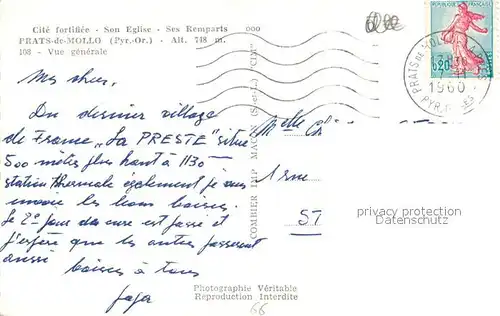 Cité fortifiée - Son Eglise - Ses Remparts
PRATS-de-MOLLO (Pyr.-Or.) - Alt. 748 m.
108 - Vue générale
Du dernier village
de France „La PRESTE" situé
500 mètres plus haut à 1130 —
station thermale également je vous
envoie les bons baisers.
Le 2e jour de cure est passé et
j'espère que les autres passeront
aussi
baisers à tous
Melle
1 rue
ST
COMBIER IMP. MACON (S.-et-L.) "CIM"
PRATS DE MOLLO
1960
PYR.
0,20
privacy protection
Dokumentenschutz
Photographie Véritable
Reproduction Interdite
66